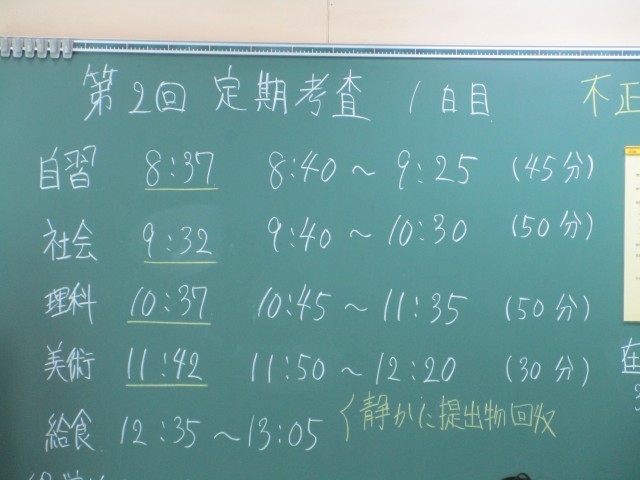 第2回 定期考査 1日目 不正
自習 8:37 8:40～9:25 (45分)
社会 9:32 9:40～10:30 (50分)
理科 10:37 10:45～11:35 (50分)
美術 11:42 11:50～12:20 (30分)
在
給食 12:35～13:05 静かに提出物回収